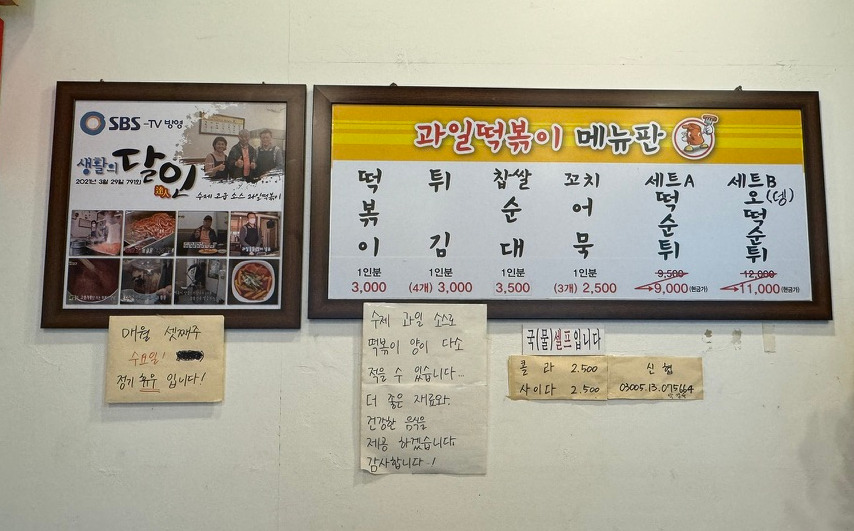 SBS -TV 방영
생활의 달인
2021년 3월 29일 791회
수제 고급 소스 과일떡볶이
과일떡볶이 메뉴판
떡볶이
1인분
3,000
튀김
1인분
(4개) 3,000
찹쌀순대
1인분
3,500
꼬치어묵
1인분
(3개) 2,500
세트A
떡순튀
9,500
→9,000(현금가)
세트B
오(뎅)떡순튀
12,000
→11,000(현금가)
매월 셋째주
수요일!
정기 휴무 입니다!
수제 과일 소스로
떡볶이 양이 다소
적을 수 있습니다...
더 좋은 재료와,
건강한 음식을
제공 하겠습니다.
감사합니다-!
국(물)셀프입니다
콜라 2.500
사이다 2.500
신협
03005.13.075664